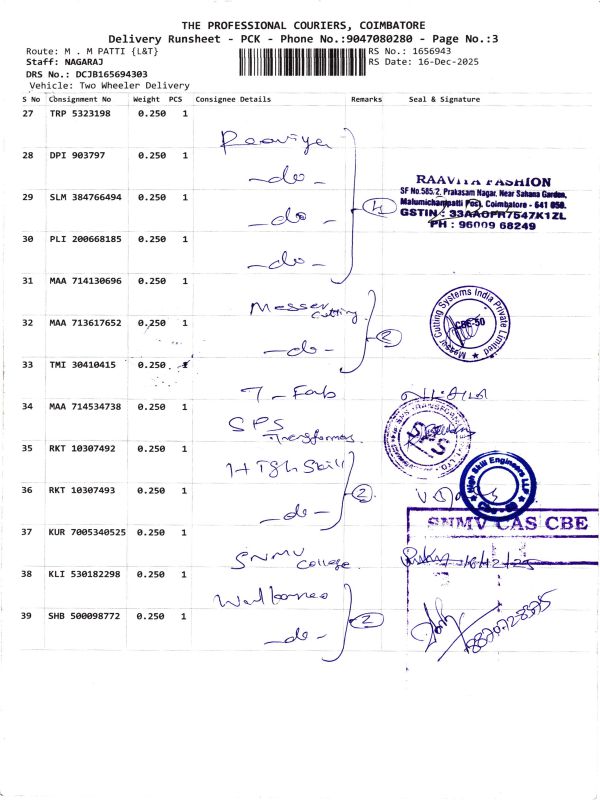 THE PROFESSIONAL COURIERS, COIMBATORE
Delivery Runsheet - PCK - Phone No.:9047080280 - Page No.:3
Route: M . M PATTI {L&T}
RS No.: 1656943
Staff: NAGARAJ
RS Date: 16-Dec-2025
DRS No.: DCJB165694303
Vehicle: Two Wheeler Delivery
S No Consignment No Weight PCS Consignee Details Remarks Seal & Signature
27 TRP 5323198 0.250 1
Raaviya
28 DPI 903797 0.250 1
-do-
29 SLM 384766494 0.250 1
-do-
4
RAAVIYA FASHION
SF No.585/2, Prakasam Nagar, Near Sahana Garden,
Malumichampatti Post, Coimbatore - 641 050.
GSTIN : 33AAOFR7547K1ZL
PH : 96009 68249
30 PLI 200668185 0.250 1
-do-
31 MAA 714130696 0.250 1
Messer Cutting
2
Messer Cutting Systems India Private Limited
CBE-50
32 MAA 713617652 0.250 1
-do-
33 TMI 30410415 0.250 1
T-Fab
34 MAA 714534738 0.250 1
SPS
Transformers
SPS
35 RKT 10307492 0.250 1
High Skill
2
High Skill Engineers LLP
36 RKT 10307493 0.250 1
-do-
37 KUR 7005340525 0.250 1
SNMV College
SNMV CAS CBE
16/12/25
38 KLI 530182298 0.250 1
39 SHB 500098772 0.250 1
-do-
2